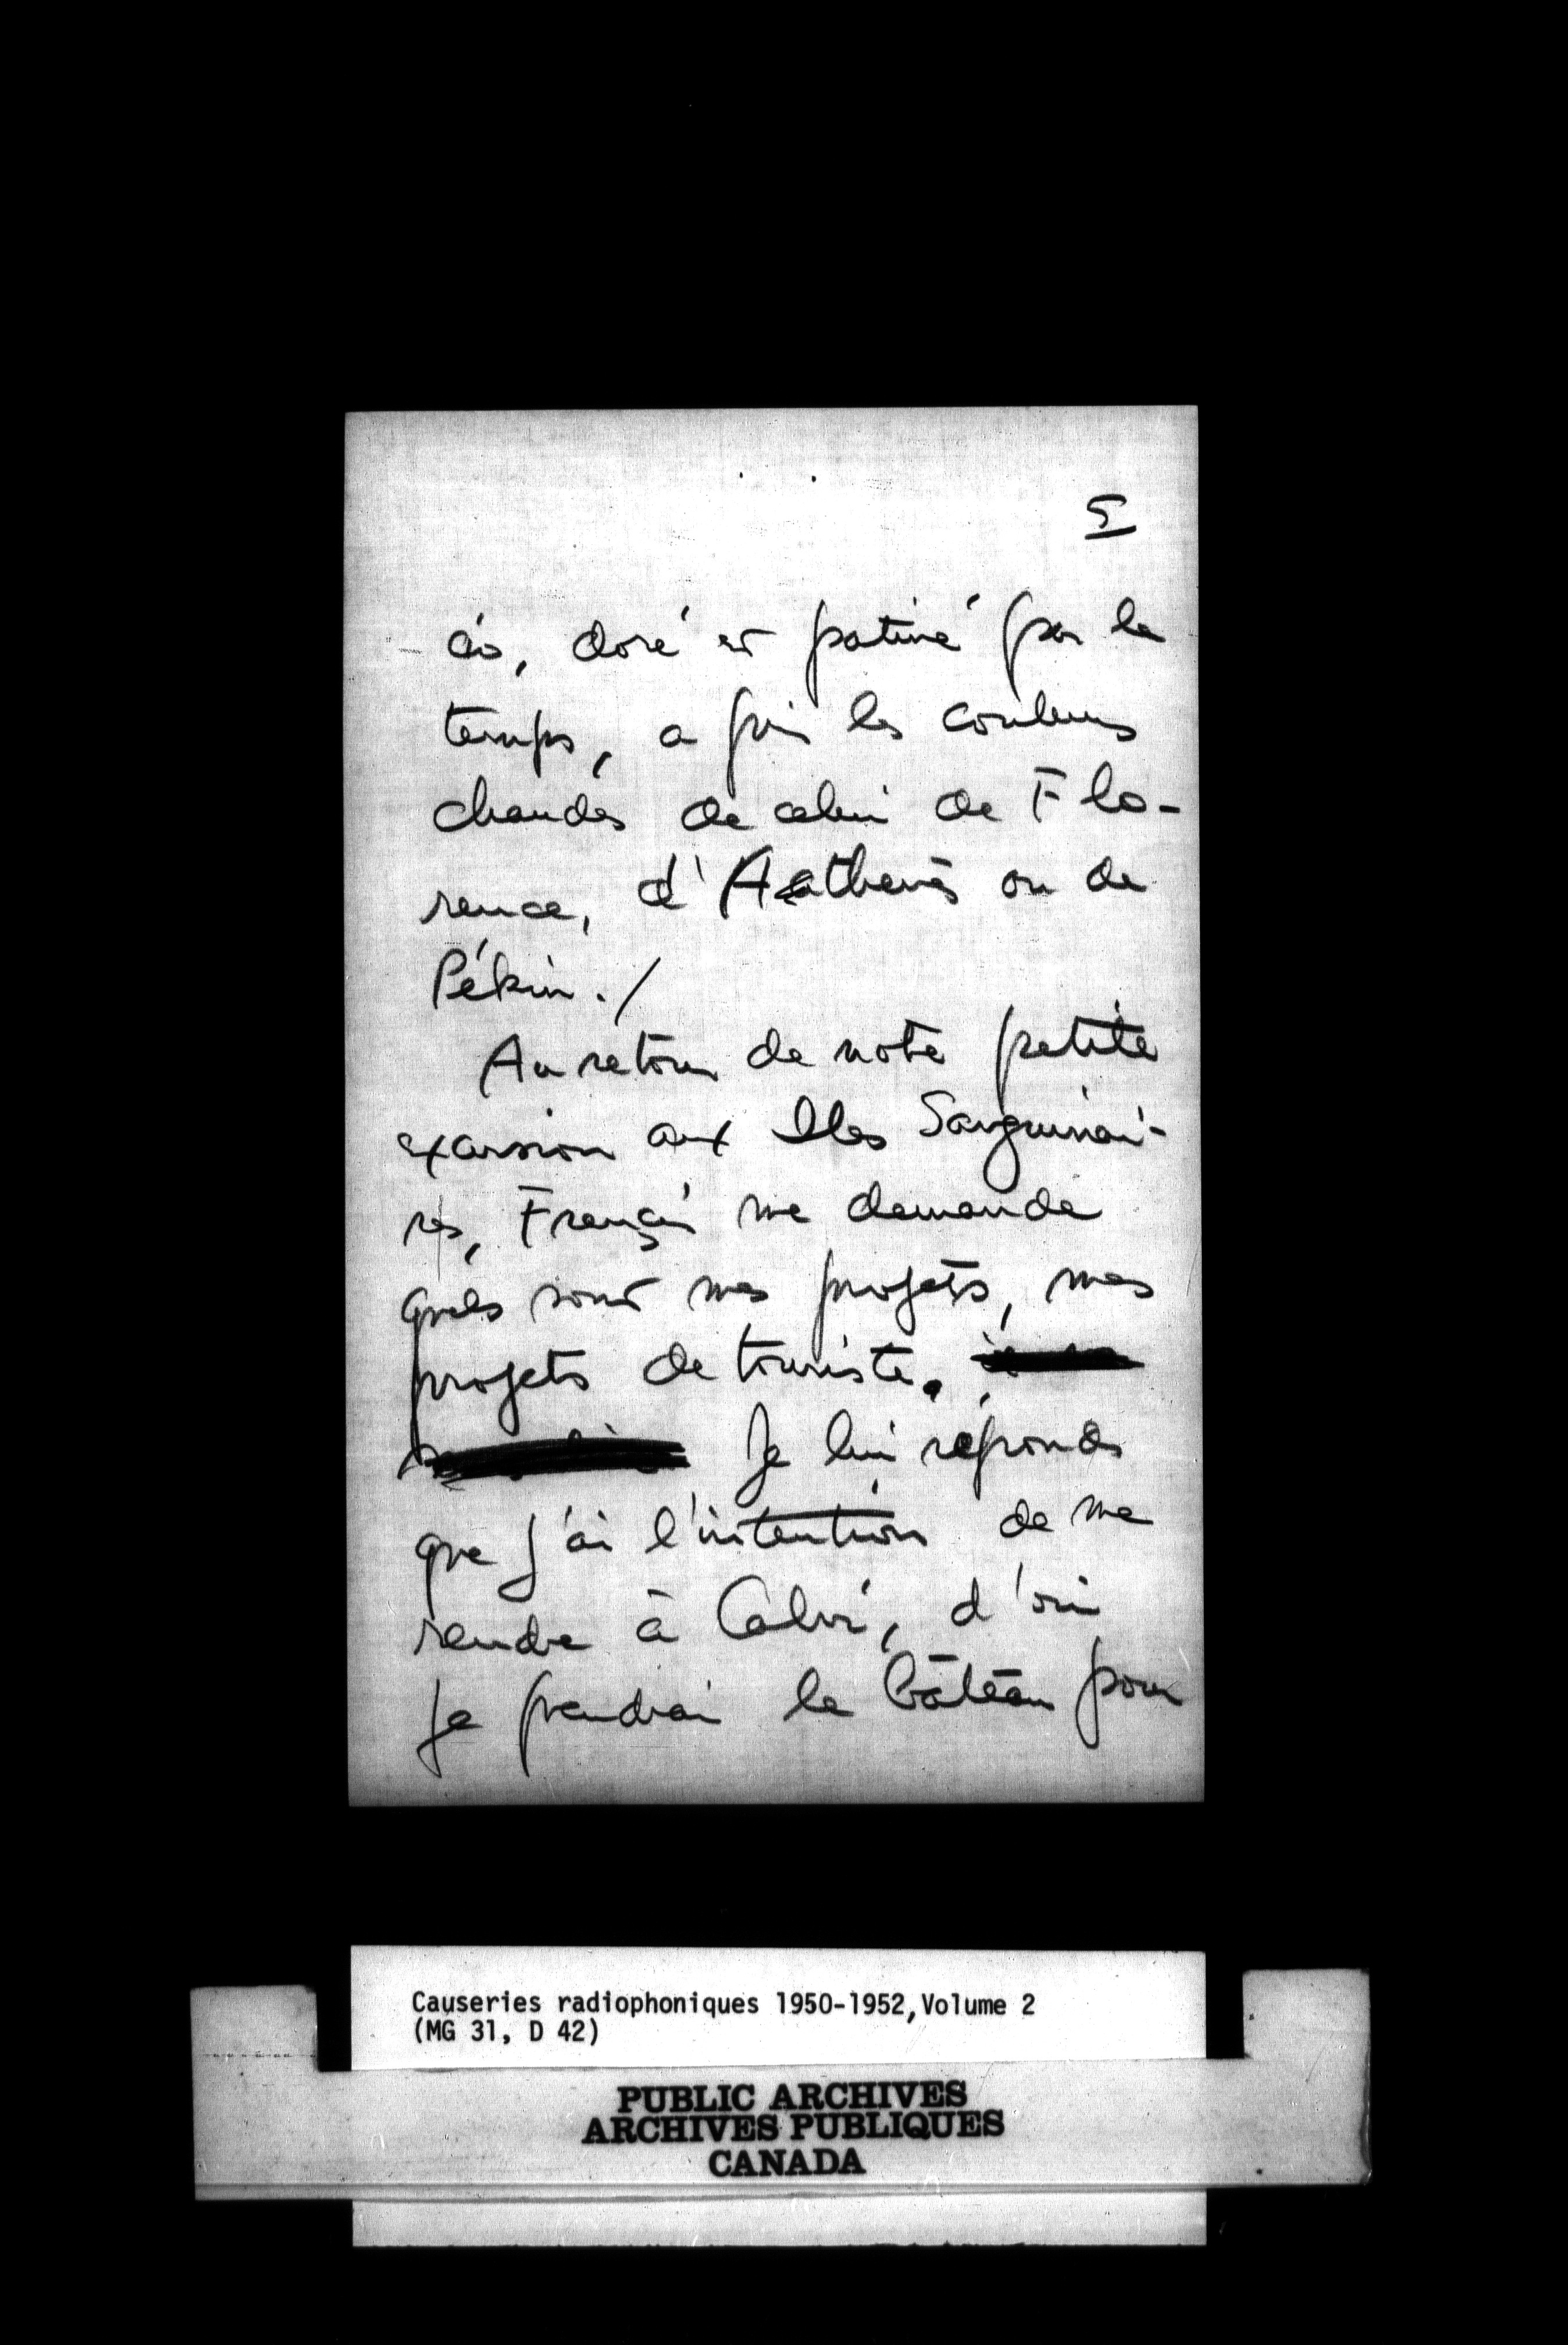 5
cio, doré et patiné par le
temps, a pris les couleurs
chaudes de celui de Flo-
rence, d'Athènes ou de
Pékin./
Au retour de notre petite
excursion aux Iles Sanguinai-
res, Français me demande
quels sont mes projets, mes
projets de touriste.
Je lui réponds
que j'ai l'intention de me
rendre à Calvi, d'où
je prendrai le bâteau pour
Causeries radiophoniques 1950-1952, Volume 2
(MG 31, D 42)
PUBLIC ARCHIVES
ARCHIVES PUBLIQUES
CANADA